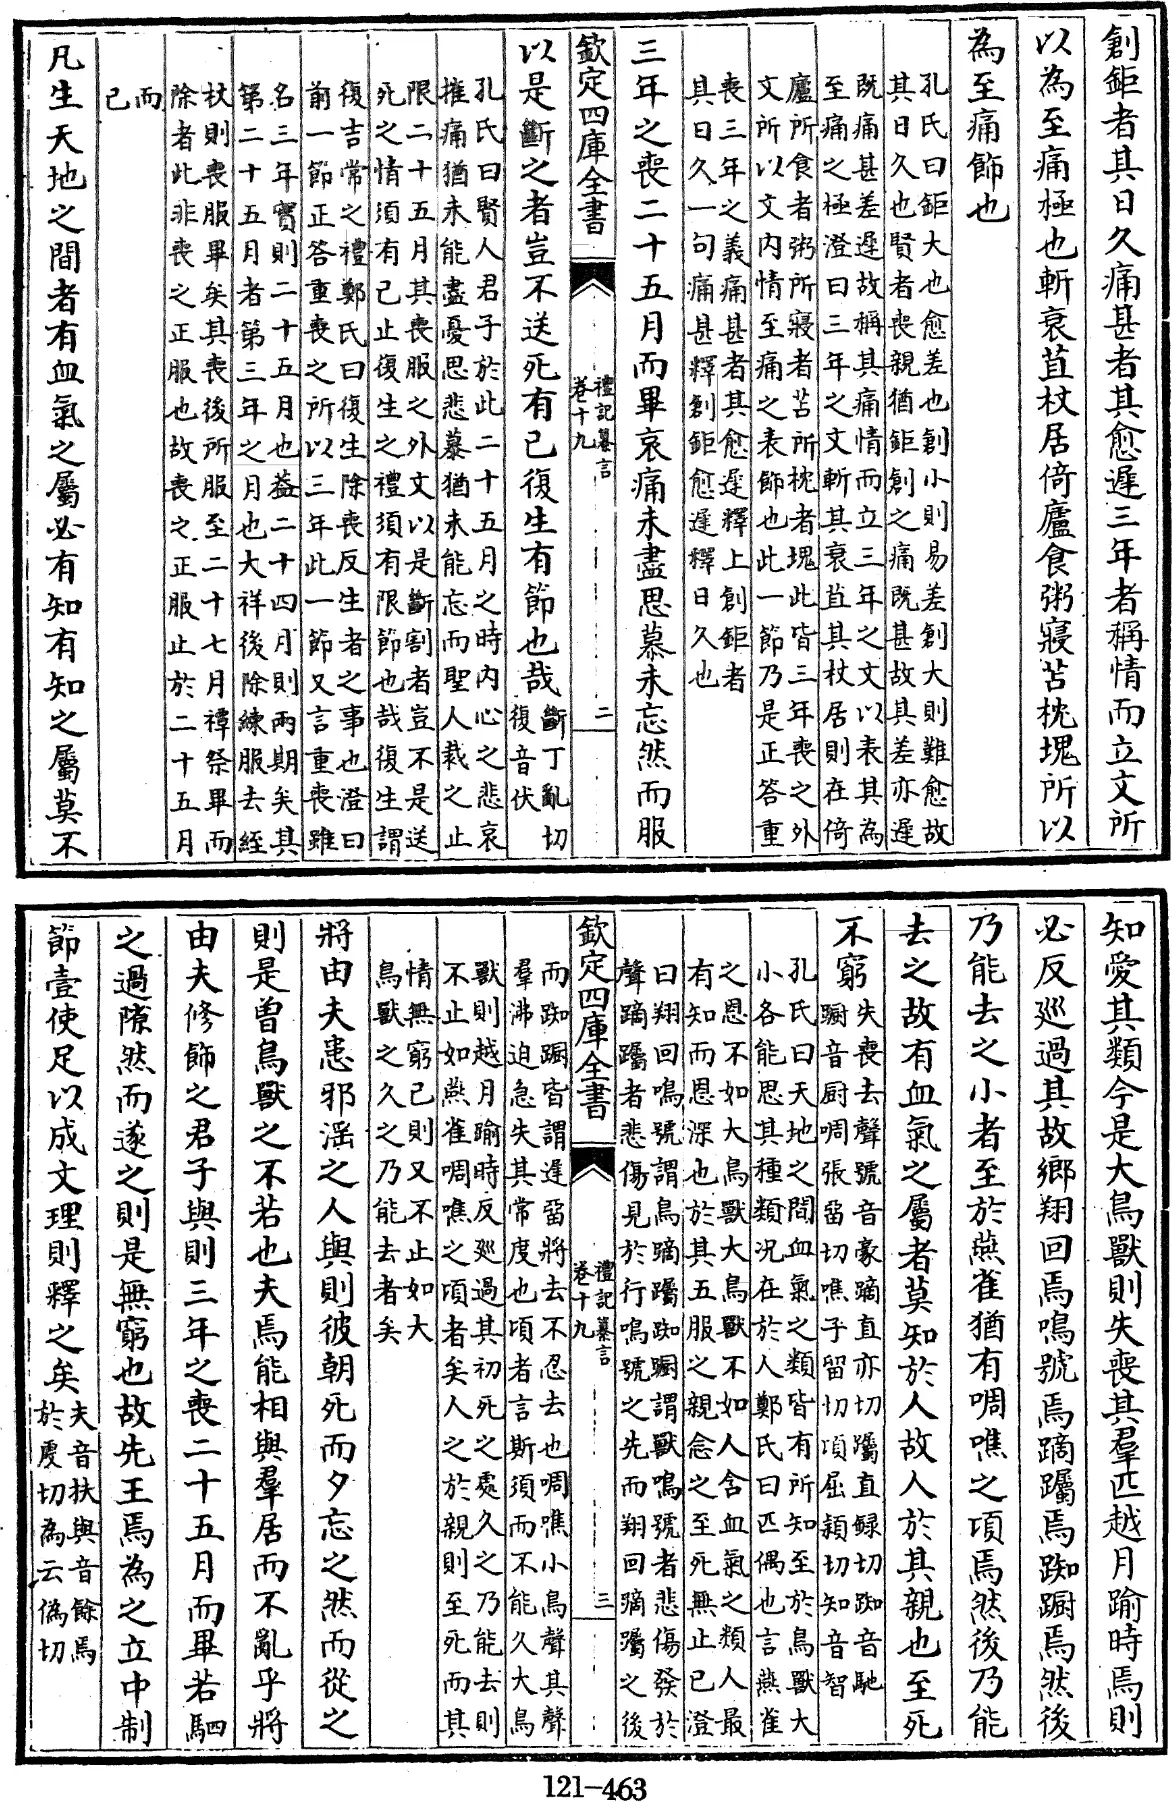 創鉅者其日久痛甚者其愈遲三年者稱情而立文所
以為至痛極也斬衰苴杖居倚廬食粥寢苫枕塊所以
為至痛飾也
孔氏曰鉅大也愈差也創小則易差創大則難愈故
其日久也賢者喪親猶鉅創之痛既甚故其差亦遲
既痛甚差遲故稱其痛情而立三年之文以表其為
至痛之極澄曰三年之文斬其衰苴其杖居則在倚
廬所食者粥所寢者苫所枕者塊此皆三年喪之外
文所以文内情至痛之表飾也此一節乃是正答重
喪三年之義痛甚者其愈遲釋上創鉅者
其日久一句痛甚釋創鉅愈遲釋日久也
三年之喪二十五月而畢哀痛未盡思慕未忘然而服
欽定四庫全書
禮記纂言
卷十九
二
以是斷之者豈不送死有已復生有節也哉
斷丁亂切
復音伏
孔氏曰賢人君子於此二十五月之時内心之悲哀
摧痛猶未能盡憂思悲慕猶未能忘而聖人裁之止
限二十五月其喪服之外文以是斷割者豈不是送
死之情須有已止復生之禮須有限節也哉復生謂
復吉常之禮鄭氏曰復生除喪反生者之事也澄曰
前一節正答重喪之所以三年此一節又言重喪雖
名三年實則二十五月也葢二十四月則兩期矣其
第二十五月者第三年之月也大祥後除練服去絰
杖則喪服畢矣其喪後所服至二十七月禫祭畢而
除者此非喪之正服也故喪之正服止於二十五月
而
已
凡生天地之間者有血氣之屬必有知有知之屬莫不
知愛其類今是大鳥獸則失喪其羣匹越月踰時焉則
必反巡過其故鄉翔回焉鳴號焉蹢躅焉踟蹰焉然後
乃能去之小者至於燕雀猶有啁噍之頃焉然後乃能
去之故有血氣之屬者莫知於人故人於其親也至死
不窮
失喪去聲號音豪蹢直亦切躅直録切踟音馳
蹰音厨啁張留切噍子留切頃屈潁切知音智
孔氏曰天地之間血氣之類皆有所知至於鳥獸大
小各能思其種類况在於人鄭氏曰匹偶也言燕雀
之恩不如大鳥獸大鳥獸不如人含血氣之類人最
有知而恩深也於其五服之親念之至死無止已澄
曰翔回鳴號謂鳥蹢躅踟蹰謂獸鳴號者悲傷發於
聲蹢躅者悲傷見於行鳴號之先而翔回蹢躅之後
而踟蹰皆謂遲留將去不忍去也啁噍小鳥聲其聲
羣沸迫急失其常度也頃者言斯須而不能久大鳥
獸則越月踰時反巡過其初死之處久之乃能去則
不止如燕雀啁噍之頃者矣人之於親則至死而其
情無窮已則又不止如大
鳥獸之久之乃能去者矣
將由夫患邪淫之人與則彼朝死而夕忘之然而從之
則是曽鳥獸之不若也夫焉能相與羣居而不亂乎將
由夫修飾之君子與則三年之喪二十五月而畢若駟
之過隙然而遂之則是無窮也故先王焉為之立中制
節壹使足以成文理則釋之矣
夫音扶與音餘焉
於虔切為云偽切
欽定四庫全書
禮記纂言
卷十九
三
121-463